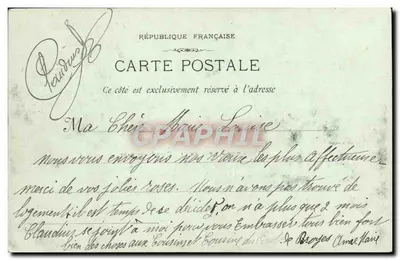 RÉPUBLIQUE FRANÇAISE
CARTE POSTALE
Ce côté est exclusivement réservé à l'adresse
Ma Chère Marie Louise
nous vous envoyons nos vœux les plus affectueux
merci de vos jolies roses. Nous n'avons pas trouvé de
logement il est temps de se décider, on n'a plus que 2 mois
Claudius se joint à moi pour vous Embrasser tous bien fort
bien des choses aux Cousins et Cousine
Claudius
CPAPHIL.COM
www.cparama.com